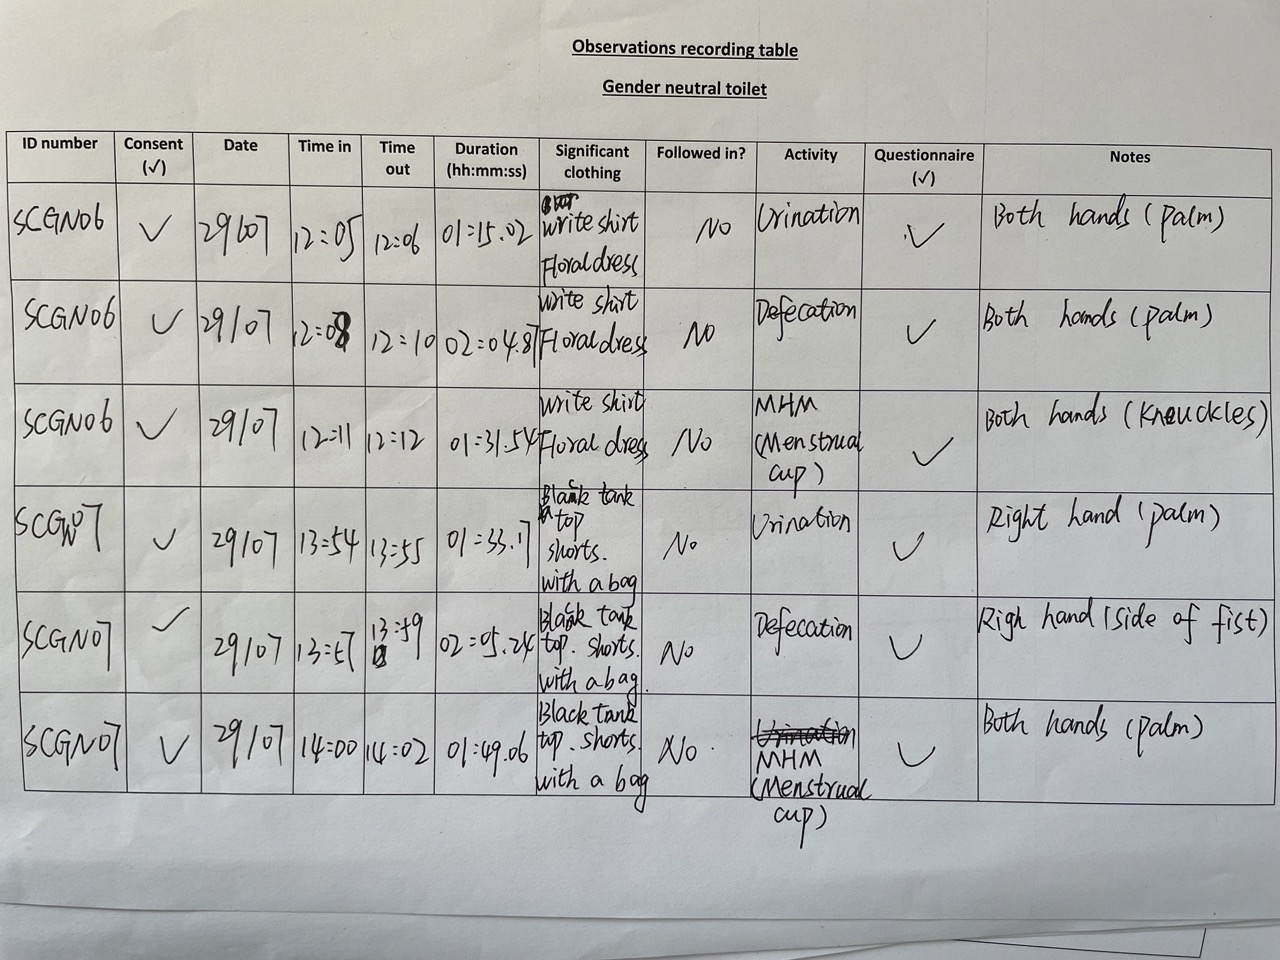 Observations recording table
Gender neutral toilet
ID number Consent (√) Date Time in Time out Duration (hh:mm:ss) Significant clothing Followed in? Activity Questionnaire (√) Notes
SCGN06 ✓ 29/07 12:05 12:06 01:15.02 write shirt Floral dress No Urination ✓ Both hands (palm)
SCGN06 ✓ 29/07 12:08 12:10 02:04.87 write shirt Floral dress No Defecation ✓ Both hands (palm)
SCGN06 ✓ 29/07 12:11 12:12 01:31.54 write shirt Floral dress No MHM (Menstrual cup) ✓ Both hands (knuckles)
SCGN07 ✓ 29/07 13:54 13:55 01:33.17 Black tank top shorts. with a bag No Urination ✓ Right hand (palm)
SCGN07 ✓ 29/07 13:57 13:59 02:05.24 Black tank top. shorts. with a bag. No Defecation ✓ Righ hand (side of fist)
SCGN07 ✓ 29/07 14:00 14:02 01:49.06 Black tank top. shorts. with a bag No. Urination MHM (Menstrual cup) ✓ Both hands (palm)